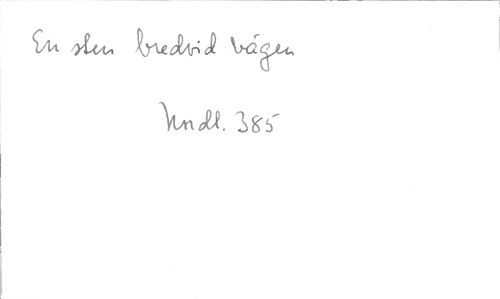 En sten bredvid vägen
Undl. 385